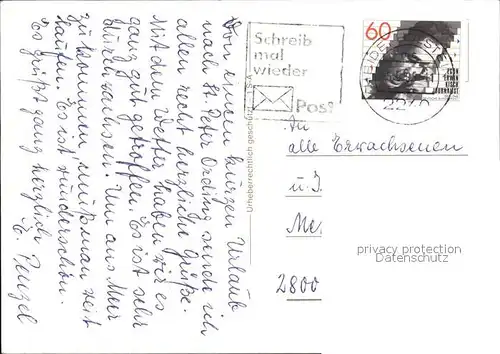 Von einem kurzen Urlaub
nach St. Peter Ording sende ich
allen recht herzliche Grüße.
Mit dem Wetter haben wir es
ganz gut getroffen. Es ist sehr
durchwachsen. Um ans Meer
zu kommen, muß man weit
laufen. Es ist wunderschön.
Es grüßt ganz herzlich
E.
Urheberrechtlich geschützt
Schreib
mal
wieder
Post
60
EGON
ERWIN
KISCH
JOURNALIST
An
alle Erwachsenen
u. J
Me
2800
privacy protection
Datenschutz